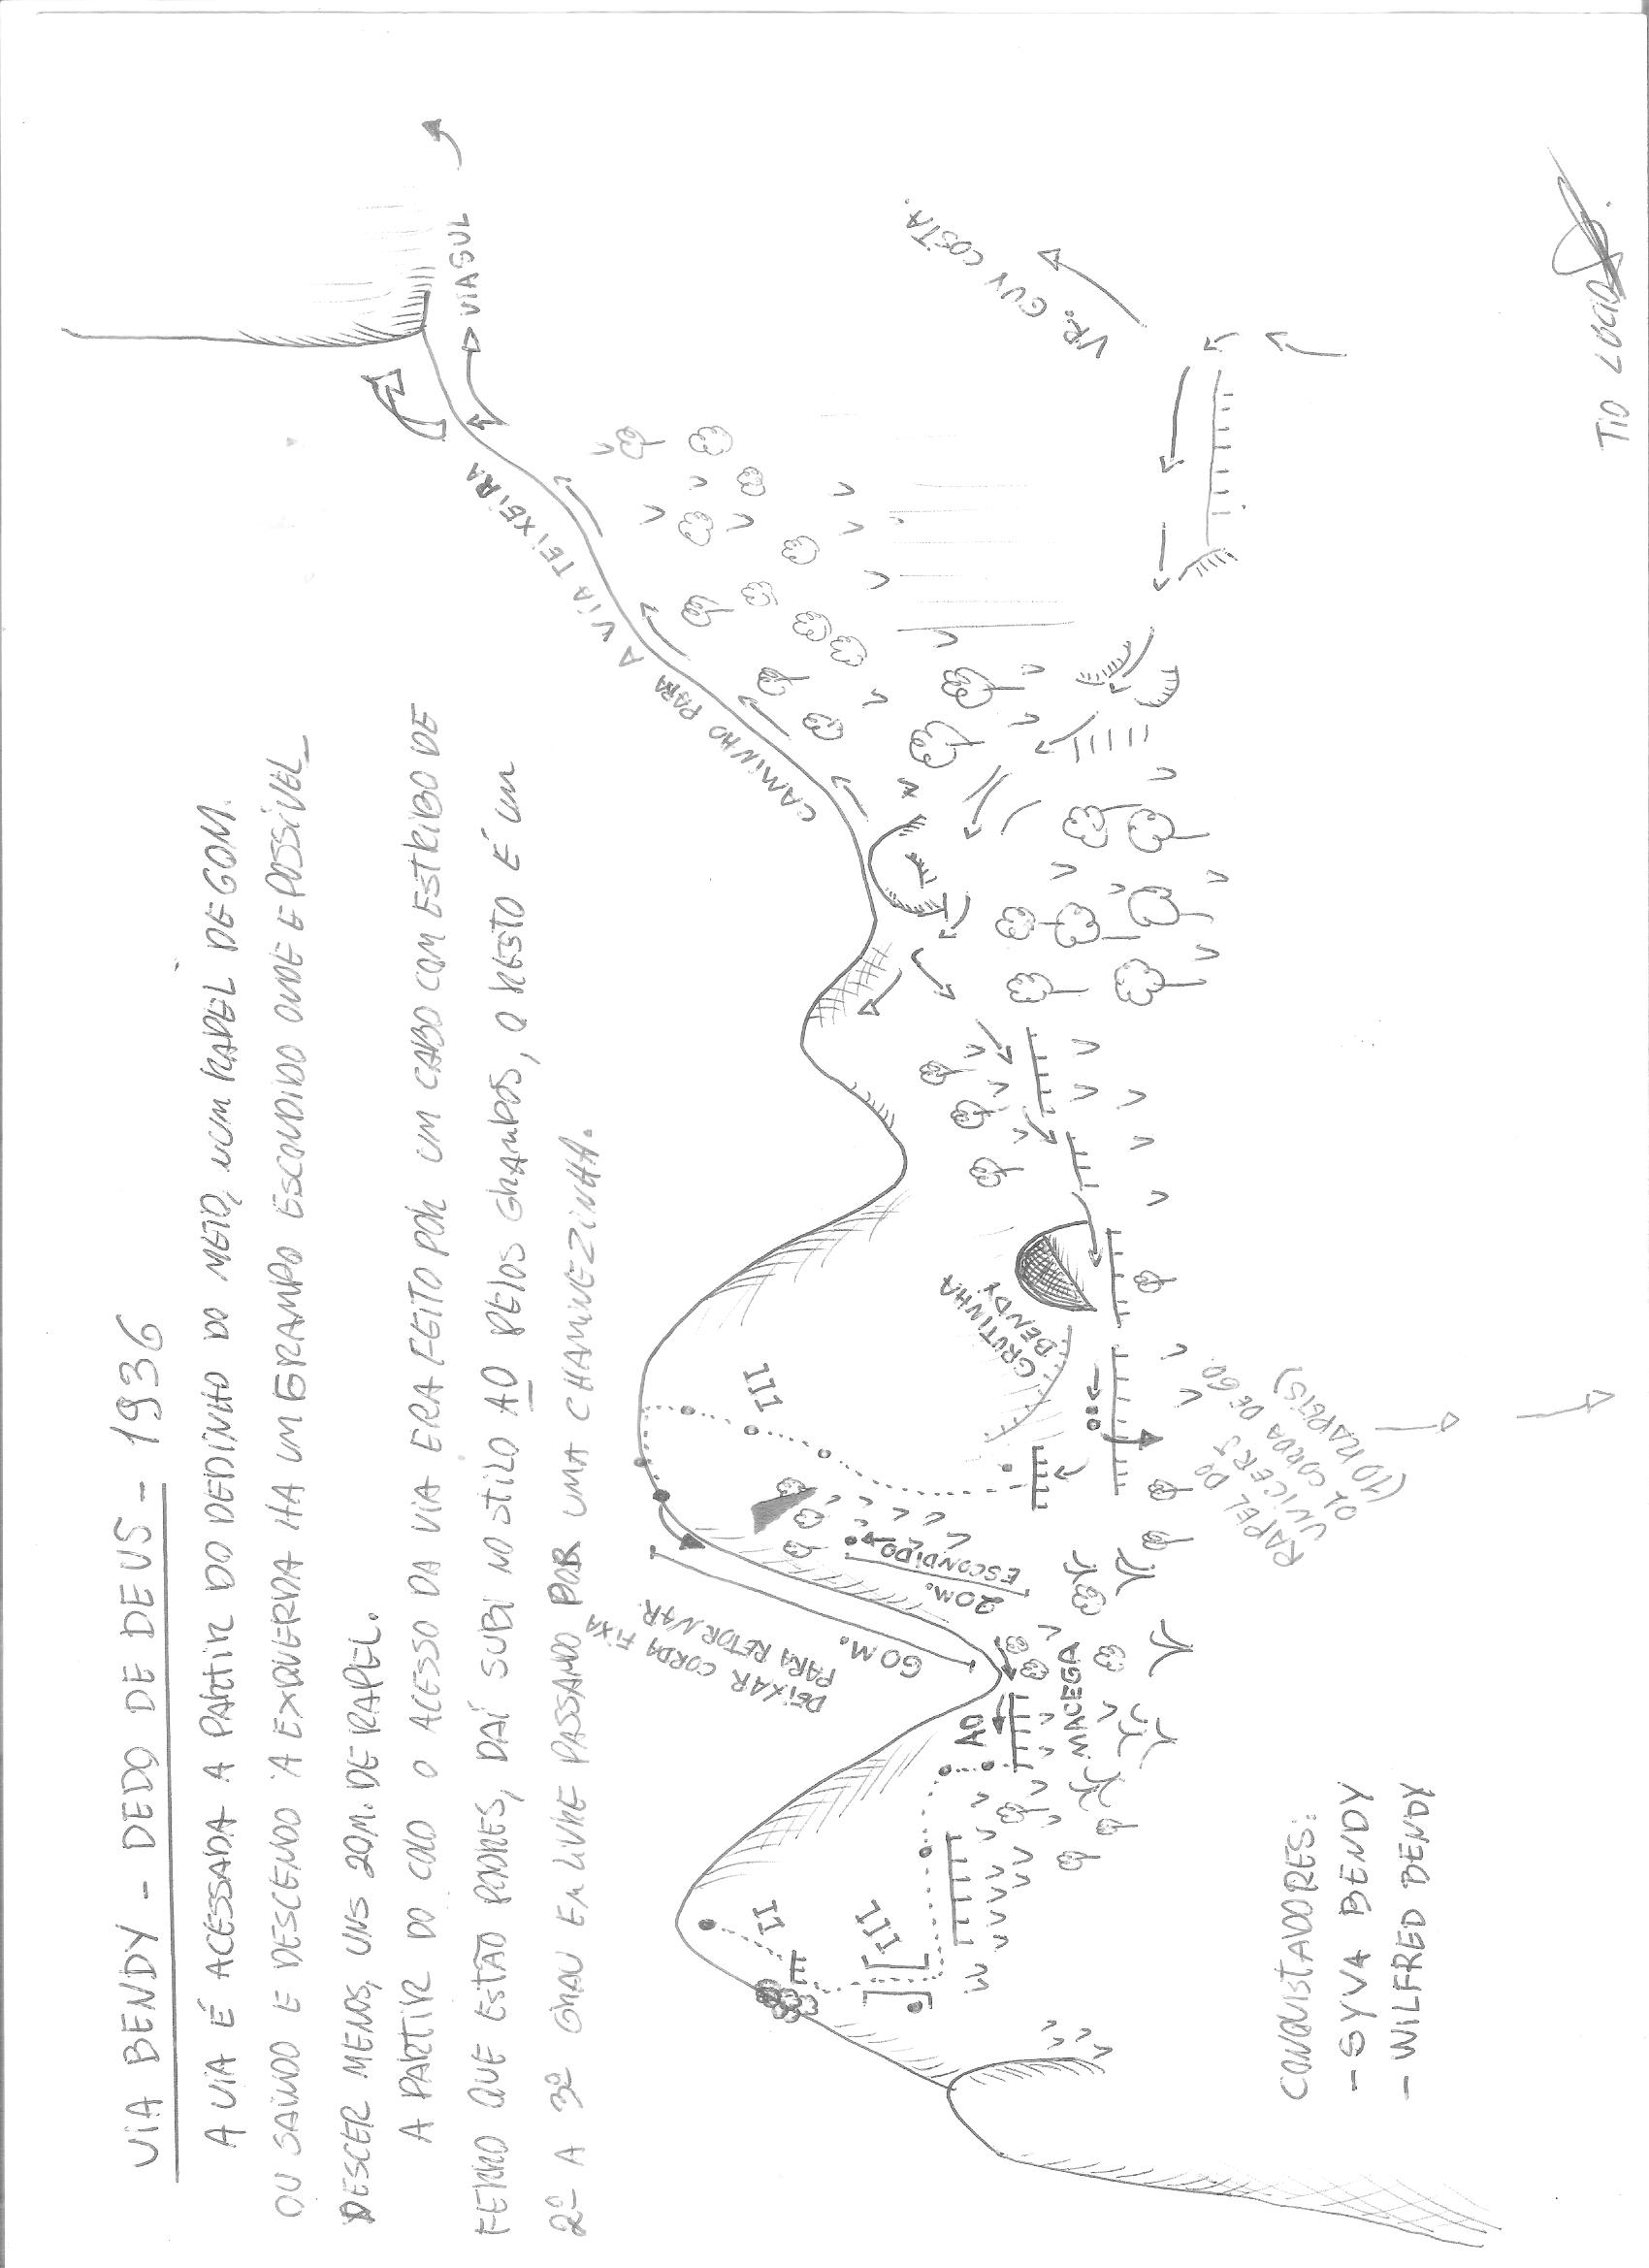 VIA BENDY - DEDO DE DEUS - 1936
A VIA É ACESSADA A PARTIR DO DEDINHO DO MEIO, NUM RAPEL DE 60M.
OU SAINDO E DESCENDO À ESQUERDA HA UM GRAMPO ESCONDIDO ONDE E POSSÍVEL
DESCER MENOS, UNS 20M. DE RAPEL.
A PARTIR DO COLO O ACESSO DA VIA ERA FEITO POR UM CABO COM ESTRIBO DE
FERRO QUE ESTÃO PODRES, DAÍ SUBI NO STILO A0 PELOS GRAMPOS, O RESTO É UM
2º A 3º GRAU EM LIVRE PASSANDO POR UMA CHAMINEZINHA.
VIA SUL
CAMINHO PARA A VIA TEIXEIRA
VR. GUY COSTA.
DEIXAR CORDA FIXA
PARA RETORNAR.
60M.
20M.
ESCONDIDO
III
GRUTINHA
BENDY
A0
MACEGA
II
III
RAPEL DO
UNICERJ
01 CORDA DE 60.
(10 RAPEIS)
CONQUISTADORES:
- SYVA BENDY
- WILFRED BENDY
TIO LUCIO